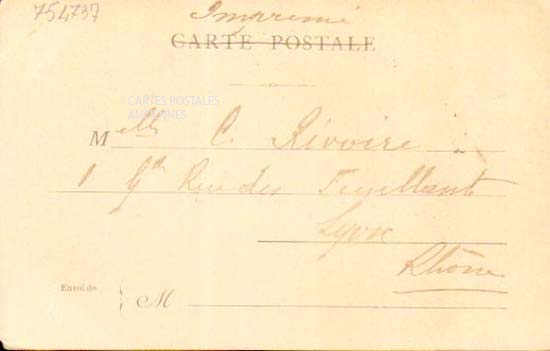 754737
Imprimé
CARTE POSTALE
CARTES POSTALES
ANCIENNES
Melle C. Rivoire à
1 Gde Rue des Feuillants
Lyon
Rhône
Envoi de M